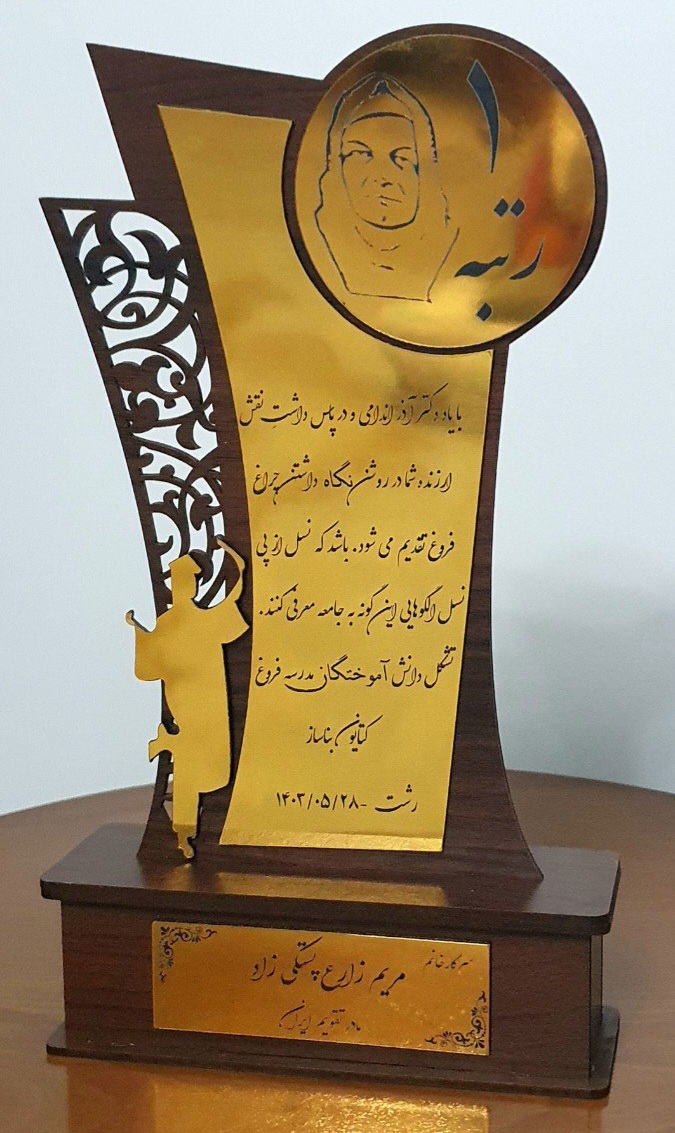 ۱
رتبه
با یاد دکتر آذر اندامی و در پاس داشت نقش
ارزنده شما در روشن نگاه داشتن چراغ
فروغ تقدیم می شود. باشد که نسل از پی
نسل الگوهایی این گونه به جامعه معرفی کنند.
تشکل دانش آموختگان مدرسه فروغ
کتایون بناساز
رشت -۱۴۰۳/۰۵/۲۸
سرکار خانم
مریم زارع پستکی زاد
مادر تقویم ایران